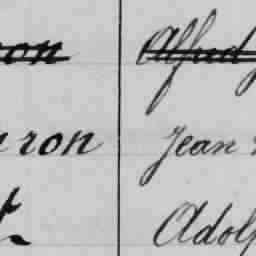 on Alfred
ron Jean
t Adolp